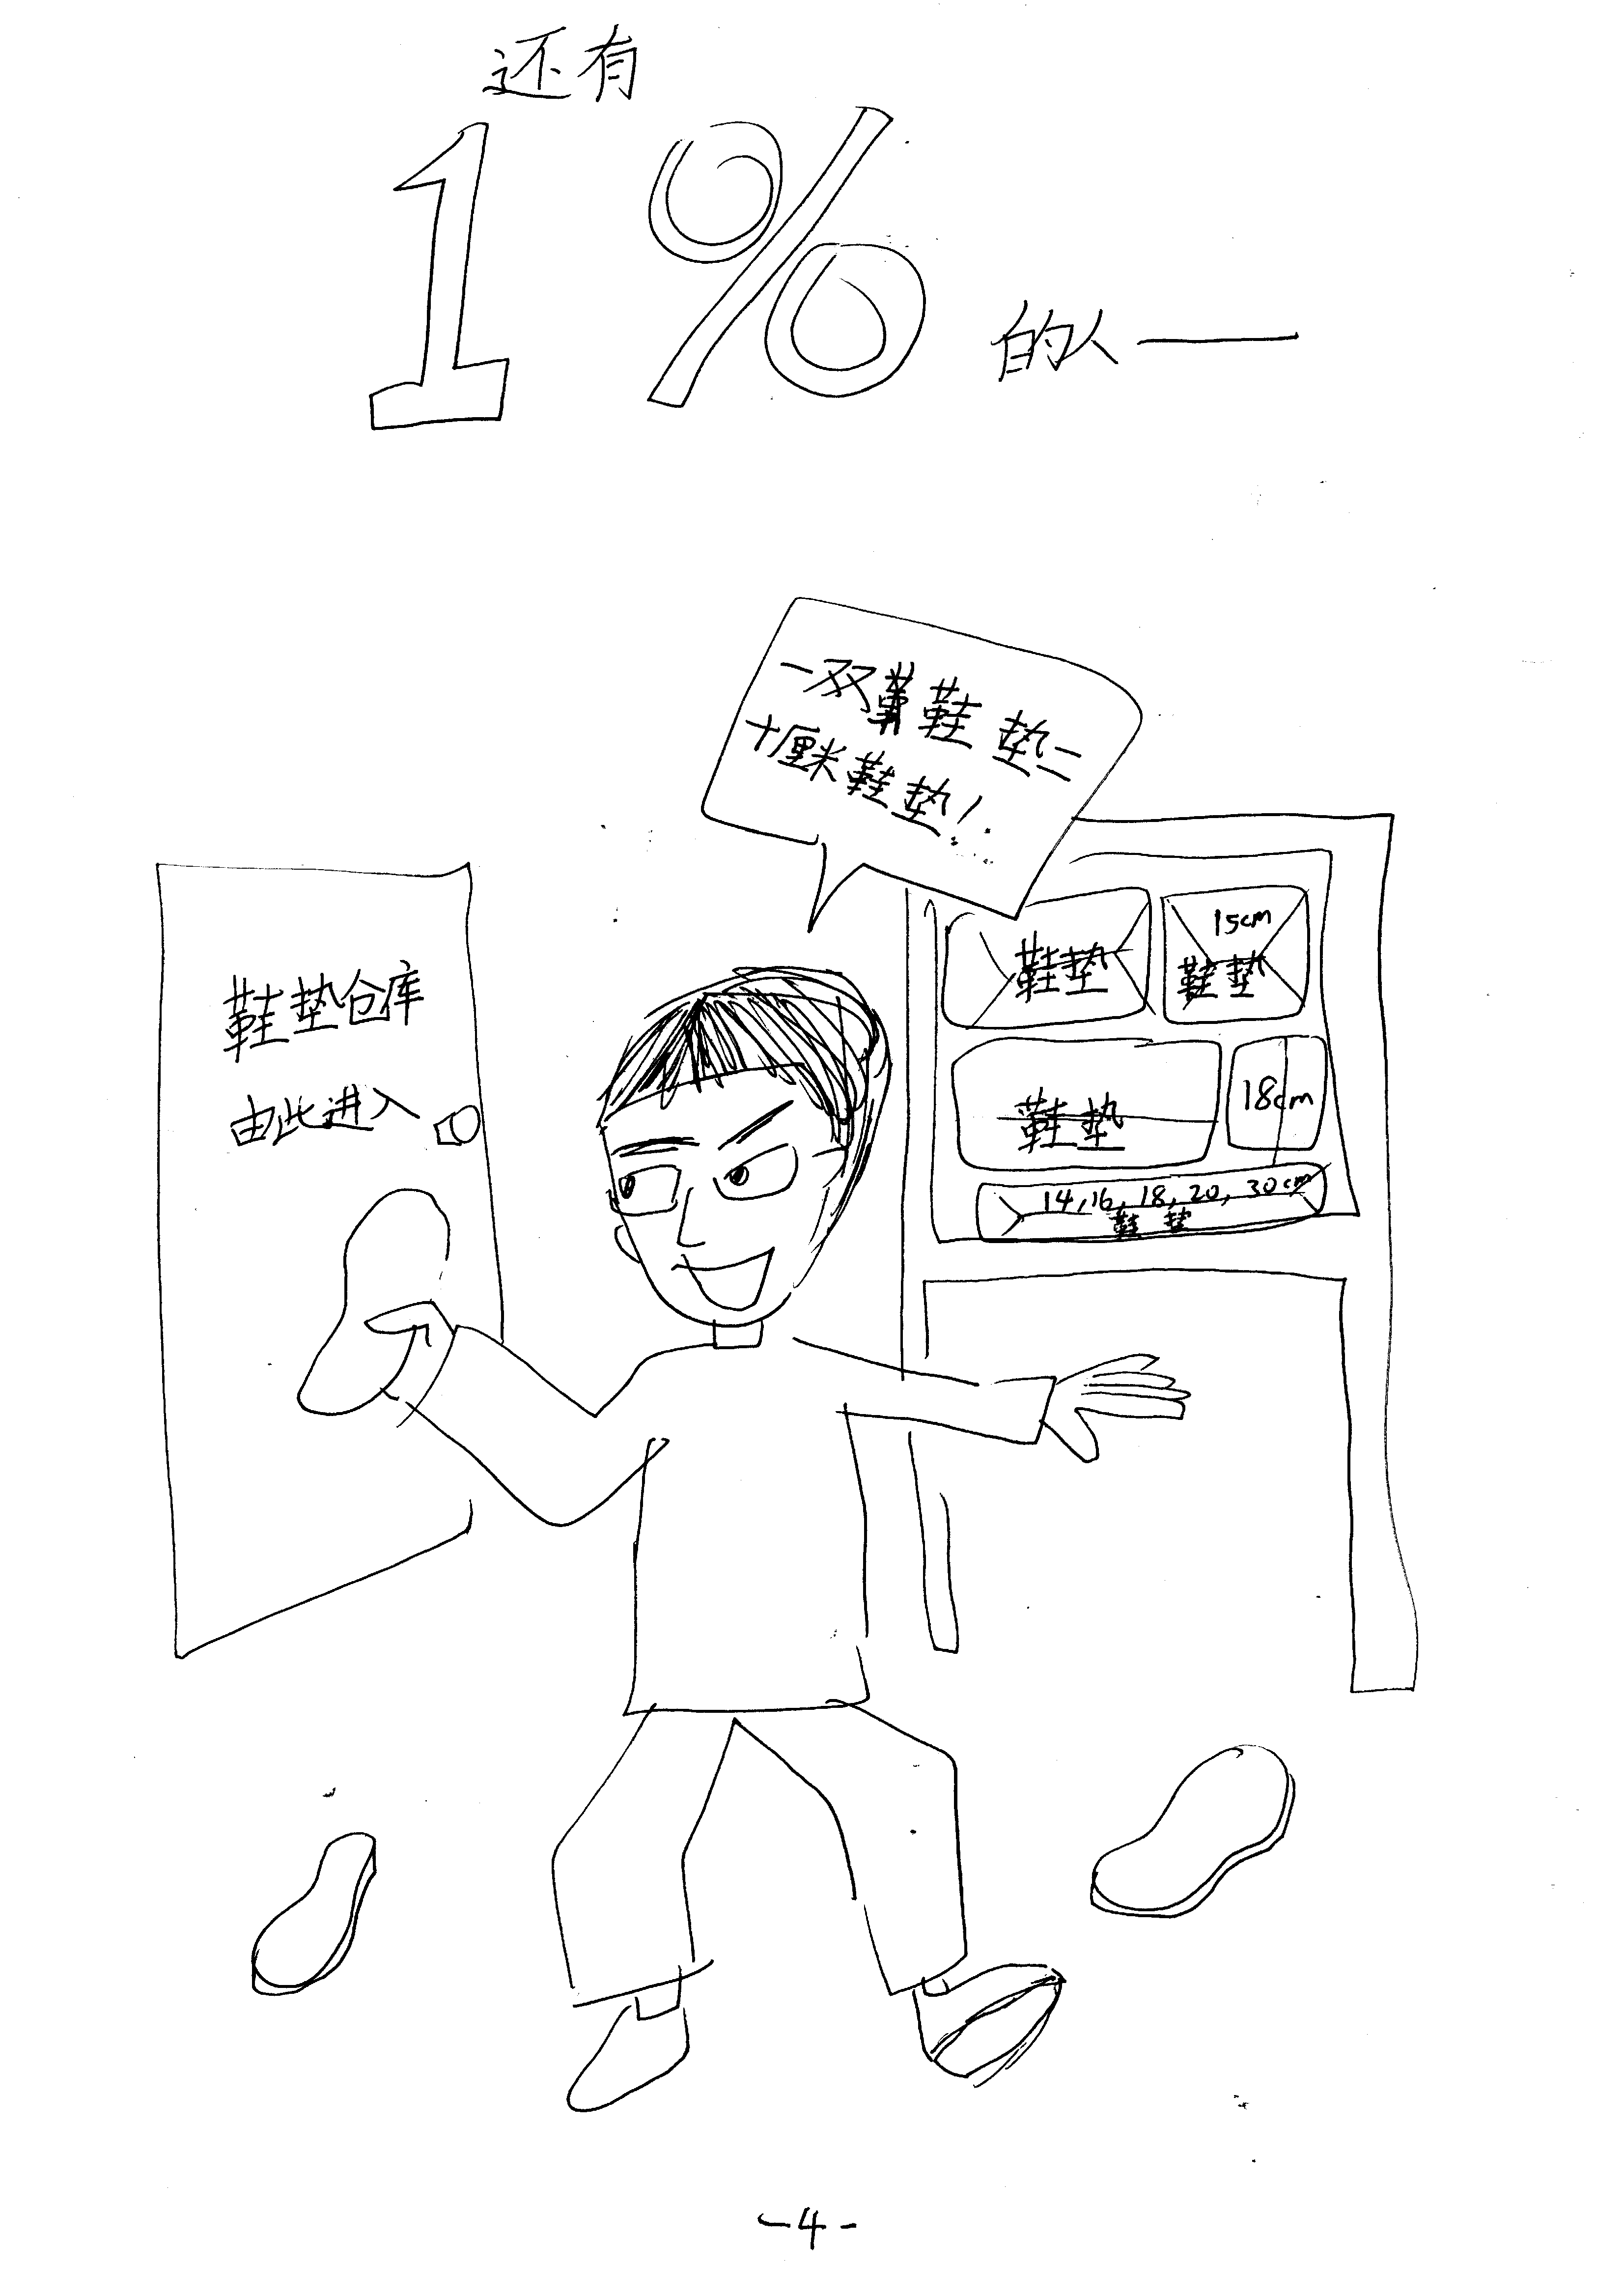 还有
1%的人——
一双鞋垫二
十厘米鞋垫！
鞋垫仓库
由此进入
鞋垫
15cm
鞋垫
鞋垫
18cm
14,16,18,20,30cm
鞋垫
-4-